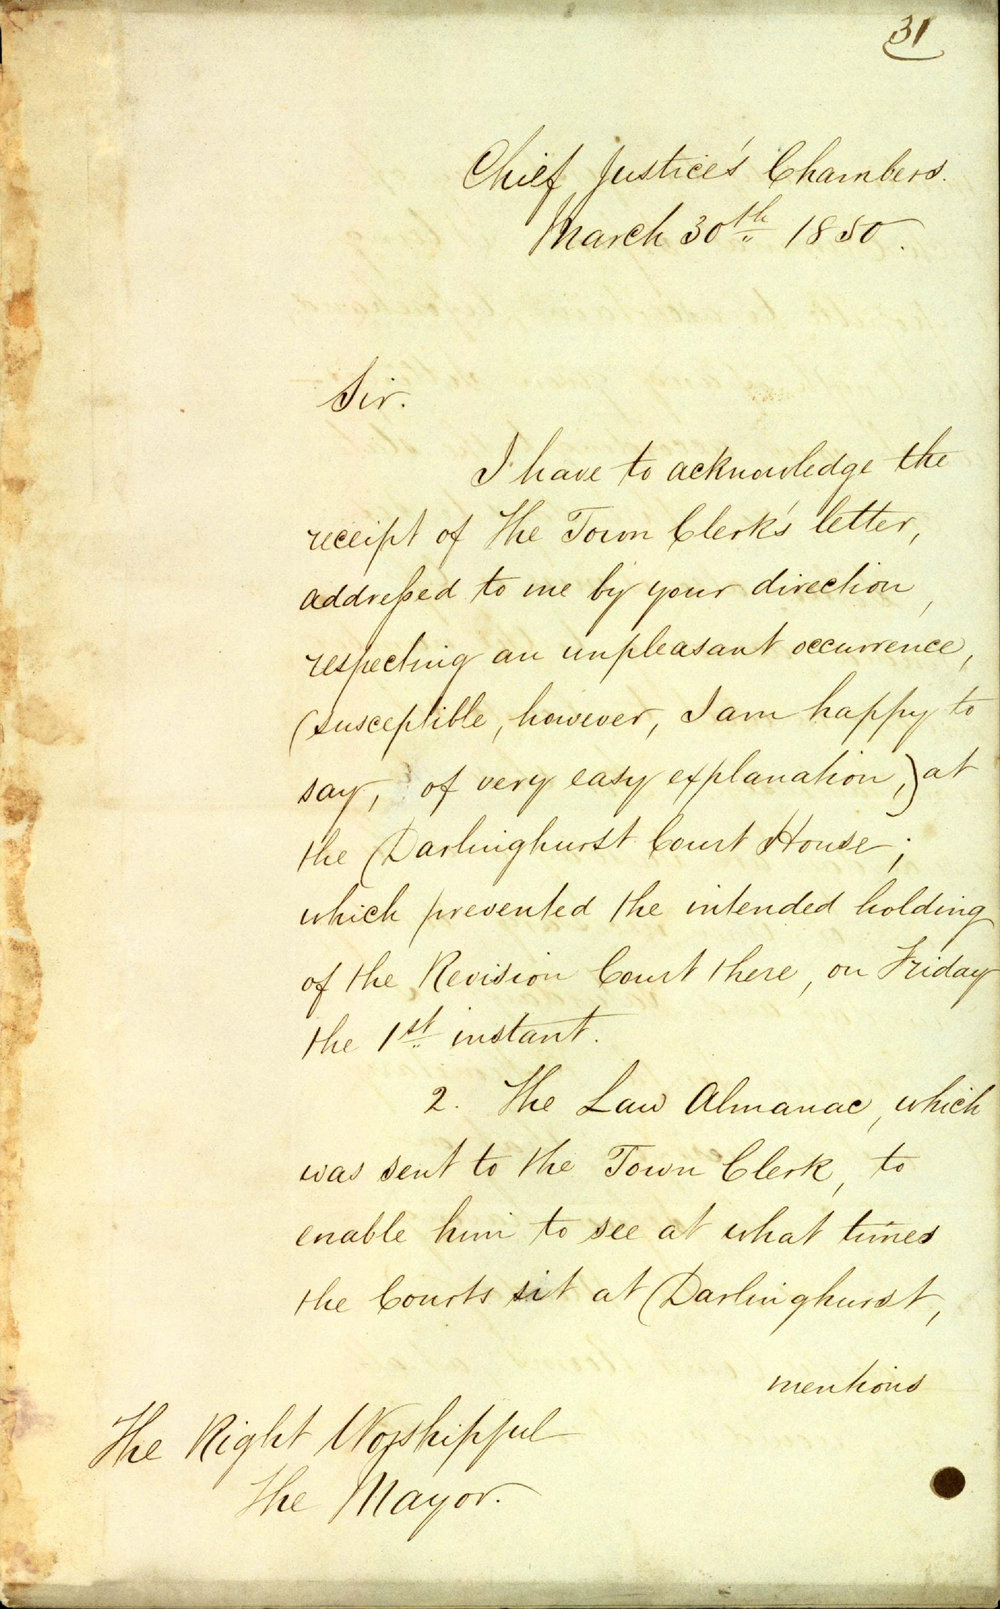 31
Chief Justice's Chambers.
March 30th 1850.
Sir.
I have to acknowledge the
receipt of the Town Clerk's letter,
addressed to me by your direction,
respecting an unpleasant occurrence,
(susceptible, however, I am happy to
say, of very easy explanation,) at
the Darlinghurst Court House;
which prevented the intended holding
of the Revision Court there, on Friday
the 1st instant.
2. The Law Almanac, which
was sent to the Town Clerk, to
enable him to see at what times
the Courts sit at Darlinghurst,
mentions
The Right Worshipful
The Mayor.